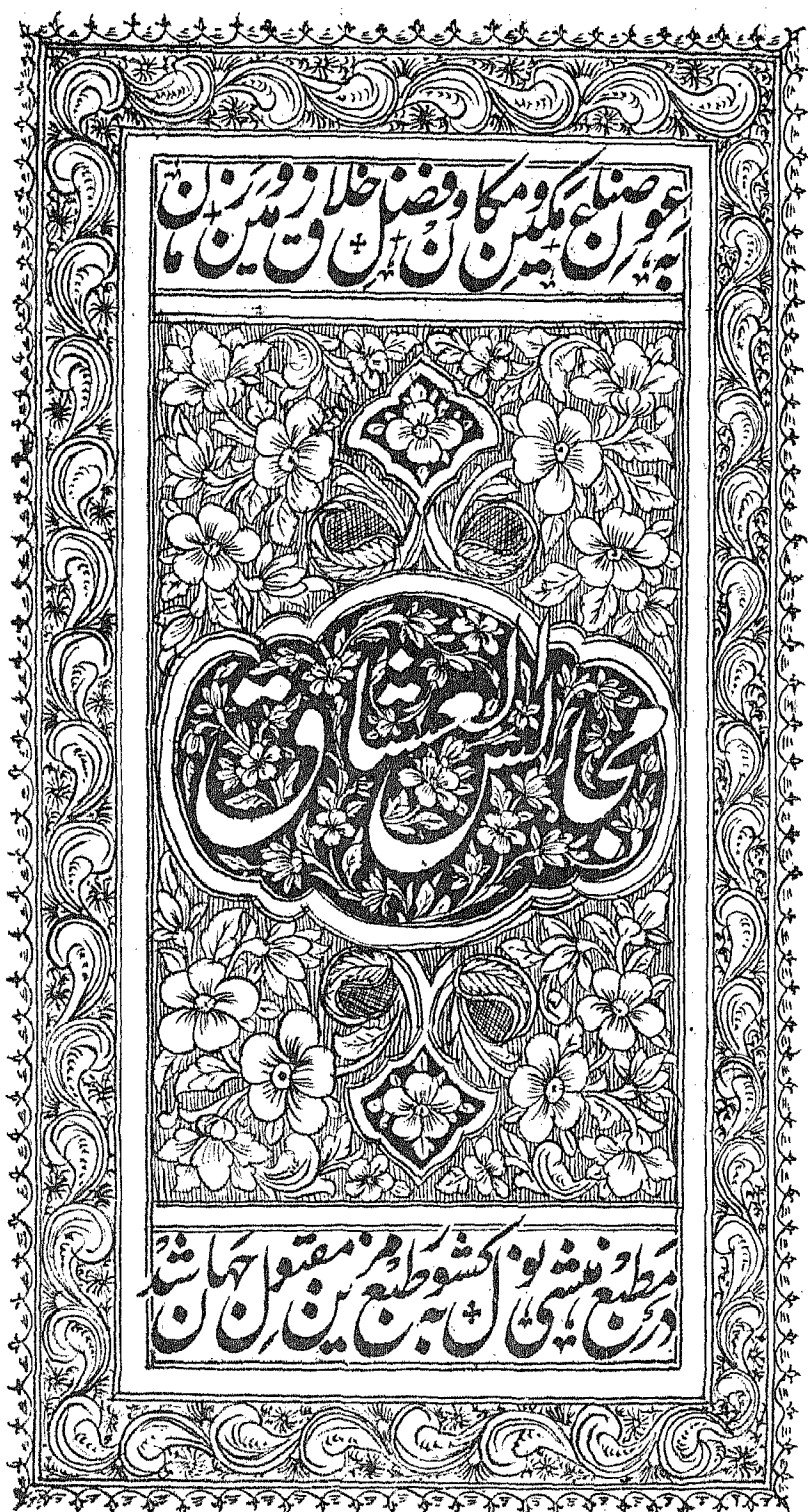 به عون صناع مکین و مکان و فضل خلاق زمین و زمان
مجالس العشاق
در مطبع منشی نولکشور به طبع مزین مقبول جهان شد